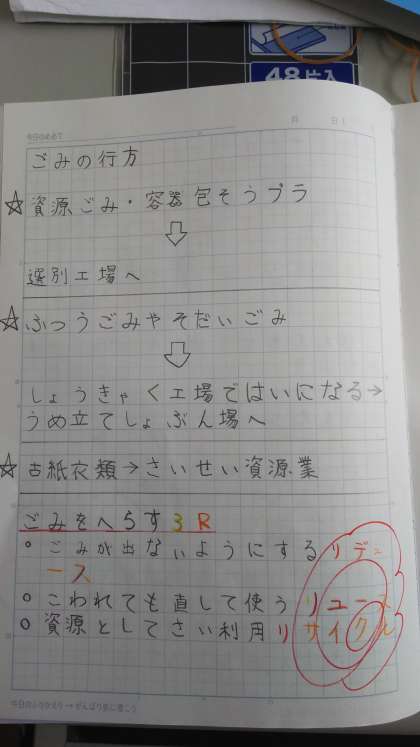 48片入
今日のめあて
月 日
ごみの行方
☆資源ごみ・容器包そうプラ
⇩
選別工場へ
☆ふつうごみやそだいごみ
⇩
しょうきゃく工場ではいになる→
うめ立てしょぶん場へ
☆古紙衣類→さいせい資源業
ごみをへらす3R
○ごみが出ないようにするリデュ
ース
○こわれても直して使うリユース
○資源としてさい利用リサイクル
今日のふりかえり→がんばり表に書こう